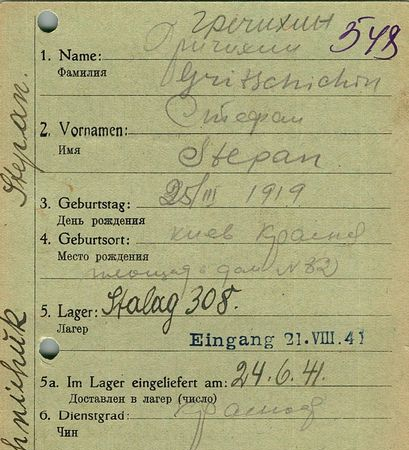 гречихин
Гричихин
548
1. Name:
Фамилия
Gritschichin
Стефан
2. Vornamen:
Имя
Stepan
3. Geburtstag: 25/III 1919
День рождения
4. Geburtsort: киев Красная
Место рождения
площадь дом N 82
5. Lager: Stalag 308.
Лагер
Eingang 21. VIII. 41
5a. Im Lager eingeliefert am: 24.6.41.
Доставлен в лагер (число)
6. Dienstgrad:
Чин
Stepan.